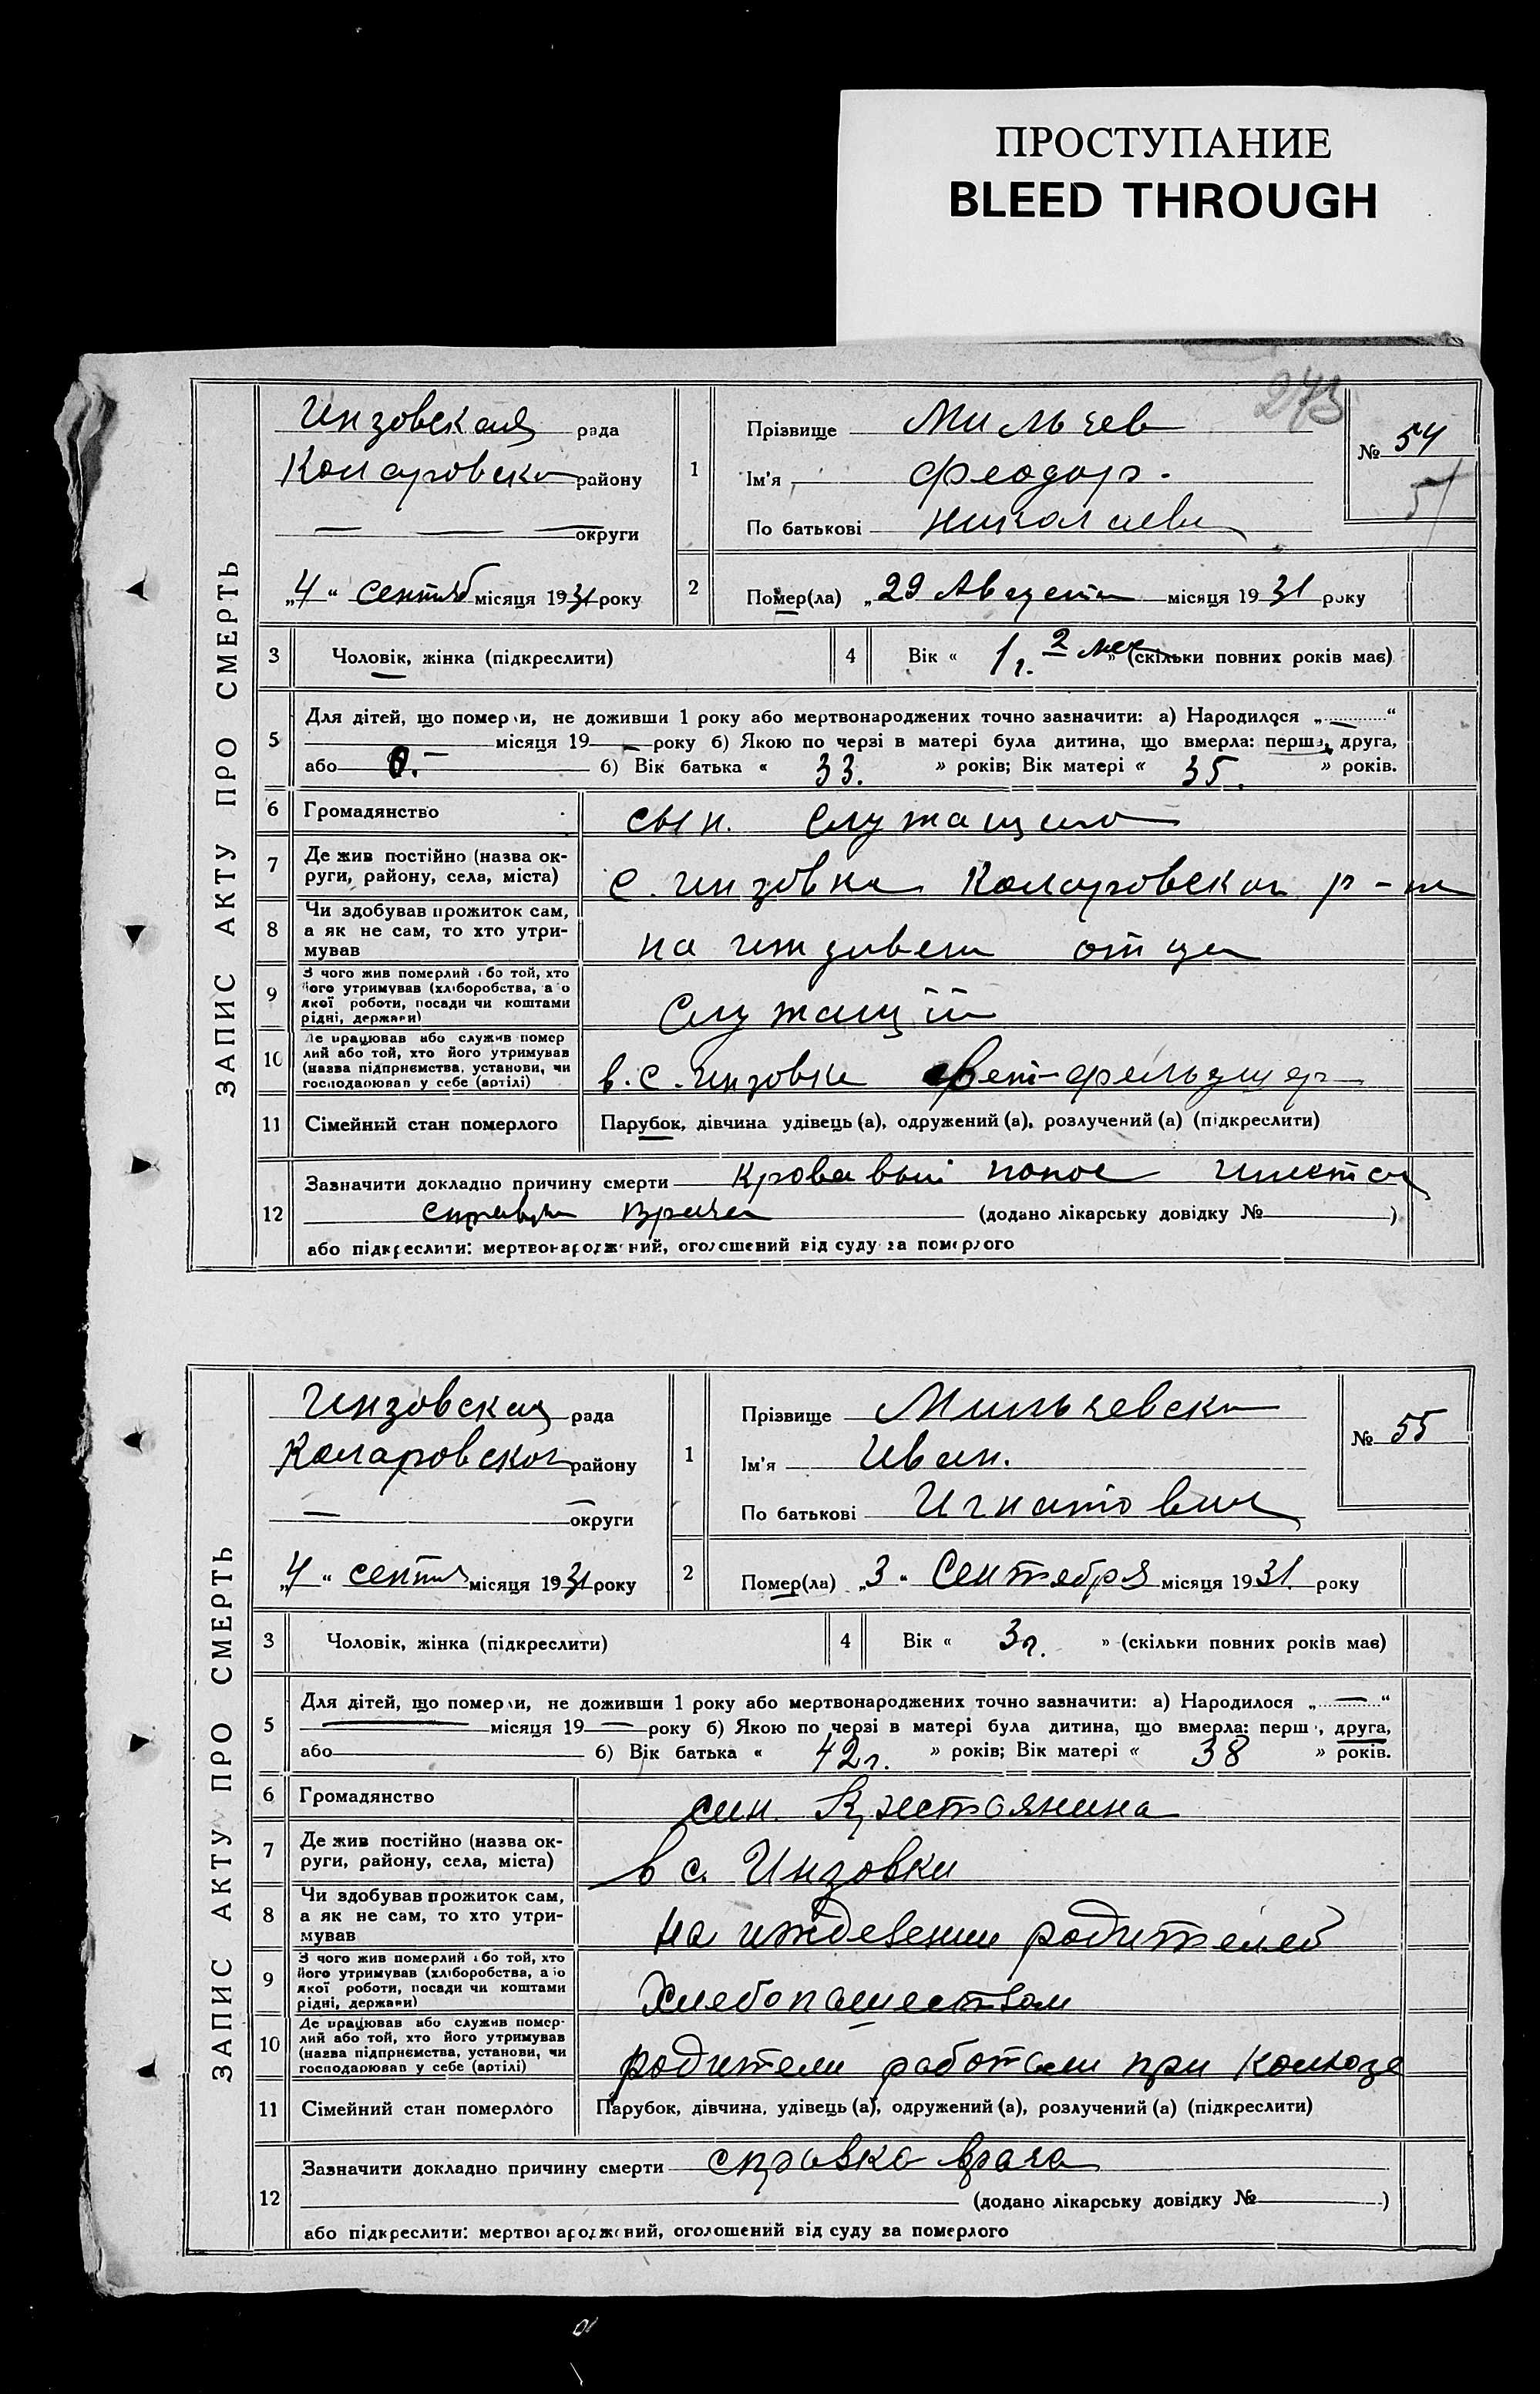 ПРОСТУПАНИЕ
BLEED THROUGH
273
ЗАПИС АКТУ ПРО СМЕРТЬ
Инзовская рада
Коларовско району
— — — округи
„4“ сентяб місяця 1931 року
1
Прізвище Мильчев
Ім'я Феодор.
По батькові Николаеви
№ 54
51
2
Помер(ла) „29 Августа місяця 1931 року
3 Чоловік, жінка (підкреслити)
4 Вік « 1 г. 2 мес » (скільки повних років має)
5
Для дітей, що померли, не доживши 1 року або мертвонароджених точно зазначити: а) Народилося „ — “
місяця 19 — року б) Якою по черзі в матері була дитина, що вмерла: перша, друга,
або — б) Вік батька « 33. » років; Вік матері « 35. » років.
6 Громадянство
сын. Служащего
7 Де жив постійно (назва ок-
руги, району, села, міста)
с. Инзовка Коларовского р-на
8 Чи здобував прожиток сам,
а як не сам, то хто утри-
мував
на иждивени отца
9 З чого жив померлий або той, хто
його утримував (хліборобства, або
якої роботи, посади чи коштами
рідні, держави)
Служащий
10 Де працював або служив помер
лий або той, хто його утримував
(назва підприємства, установи, чи
господарював у себе (артілі)
в. с. Инзовке вет-фельдшер
11 Сімейний стан померлого
Парубок, дівчина удівець (а), одружений (а), розлучений (а) (підкреслити)
12
Зазначити докладно причину смерти Кровавый понос имеется
справка врача (додано лікарську довідку № )
або підкреслити: мертвонароджений, оголошений від суду за померлого
ЗАПИС АКТУ ПРО СМЕРТЬ
Инзовская рада
Коларовского району
— — округи
„4“ сентя місяця 1931 року
1
Прізвище Мильчевски
Ім'я Иван.
По батькові Игнатович
№ 55
2
Помер(ла) „3“ Сентября місяця 1931. року
3 Чоловік, жінка (підкреслити)
4 Вік « 3 г. » (скільки повних років має)
5
Для дітей, що померли, не доживши 1 року або мертвонароджених точно зазначити: а) Народилося „ — “
— місяця 19 — року б) Якою по черзі в матері була дитина, що вмерла: перш , друга,
або б) Вік батька « 42 г. » років; Вік матері « 38 » років.
6 Громадянство
син. Крестоянина
7 Де жив постійно (назва ок-
руги, району, села, міста)
в с. Инзовки
8 Чи здобував прожиток сам,
а як не сам, то хто утри-
мував
на иждевении родителей
9 З чого жив померлий або той, хто
його утримував (хліборобства, або
якої роботи, посади чи коштами
рідні, держави)
Хлебопашеством
10 Де працював або служив помер-
лий або той, хто його утримував
(назва підприємства, установи, чи
господарював у себе (артілі)
родители работали при колхозе
11 Сімейний стан померлого
Парубок, дівчина, удівець (а), одружений (а), розлучений (а) (підкреслити)
12
Зазначити докладно причину смерти справка врача
(додано лікарську довідку № )
або підкреслити: мертвонароджений, оголошений від суду за померлого